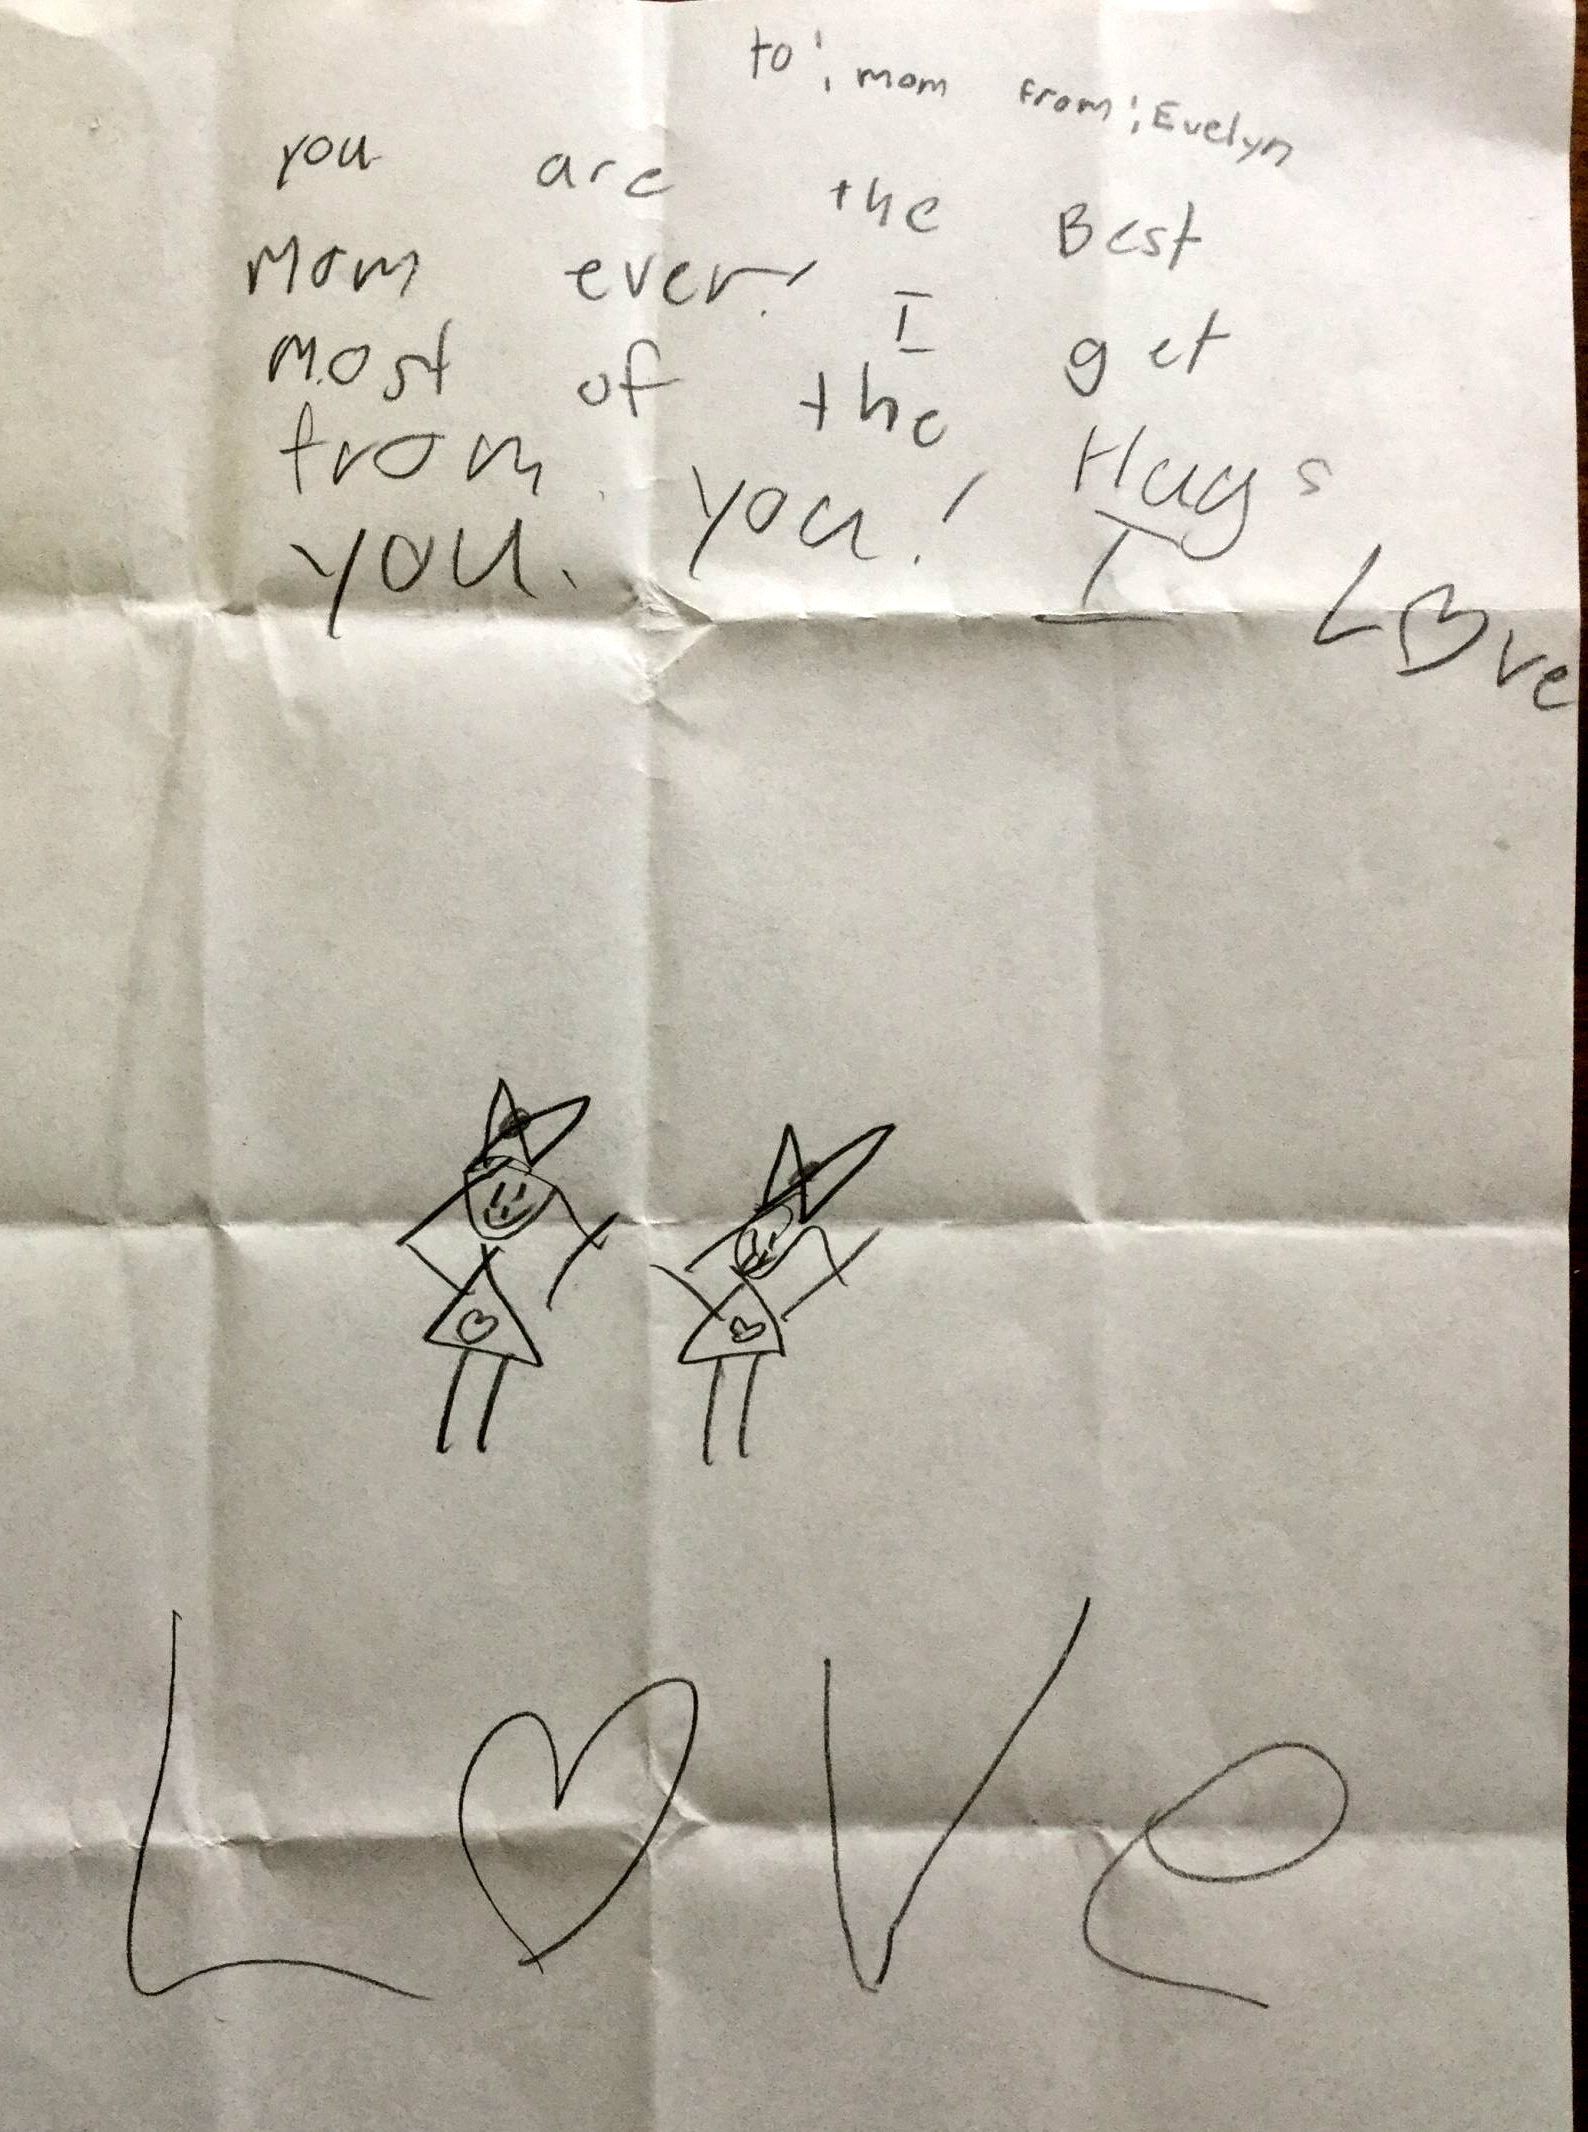 to; mom from; Evelyn
you are the Best
Mom ever! I get
most of the Hugs
from you! I Love
you.
Love